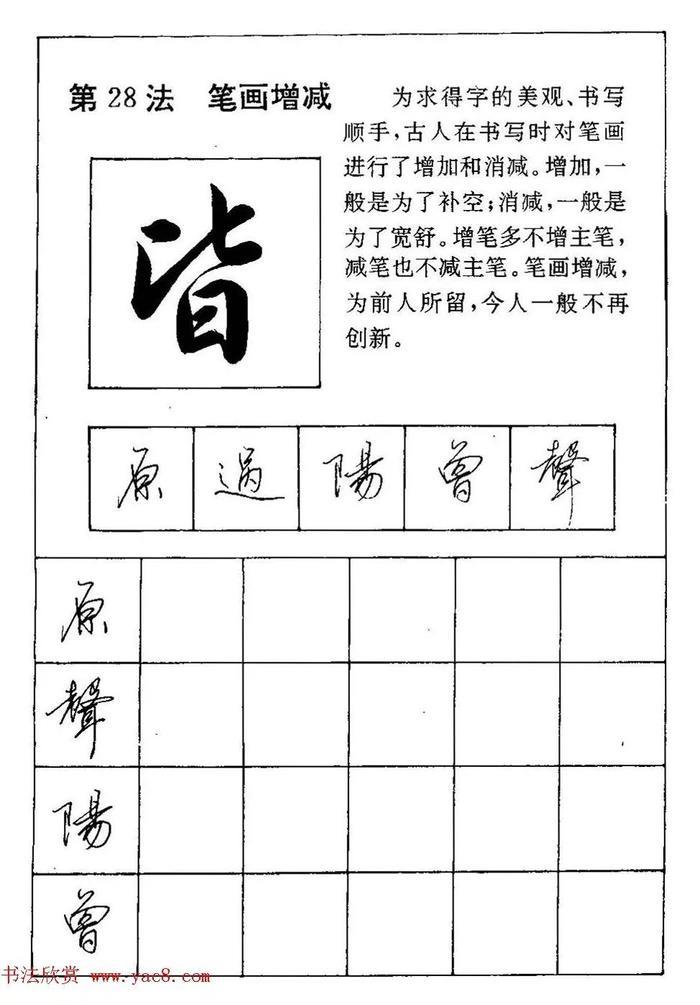 第28法 笔画增减
为求得字的美观、书写
顺手，古人在书写时对笔画
进行了增加和消减。增加，一
般是为了补空；消减，一般是
为了宽舒。增笔多不增主笔，
减笔也不减主笔。笔画增减，
为前人所留，今人一般不再
创新。
皆
原 過 陽 曾 聲
原
聲
陽
曾
书法欣赏 www.yac8.com